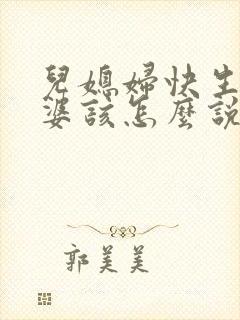 兒媳婦快生
婆該怎麼說
郭美美